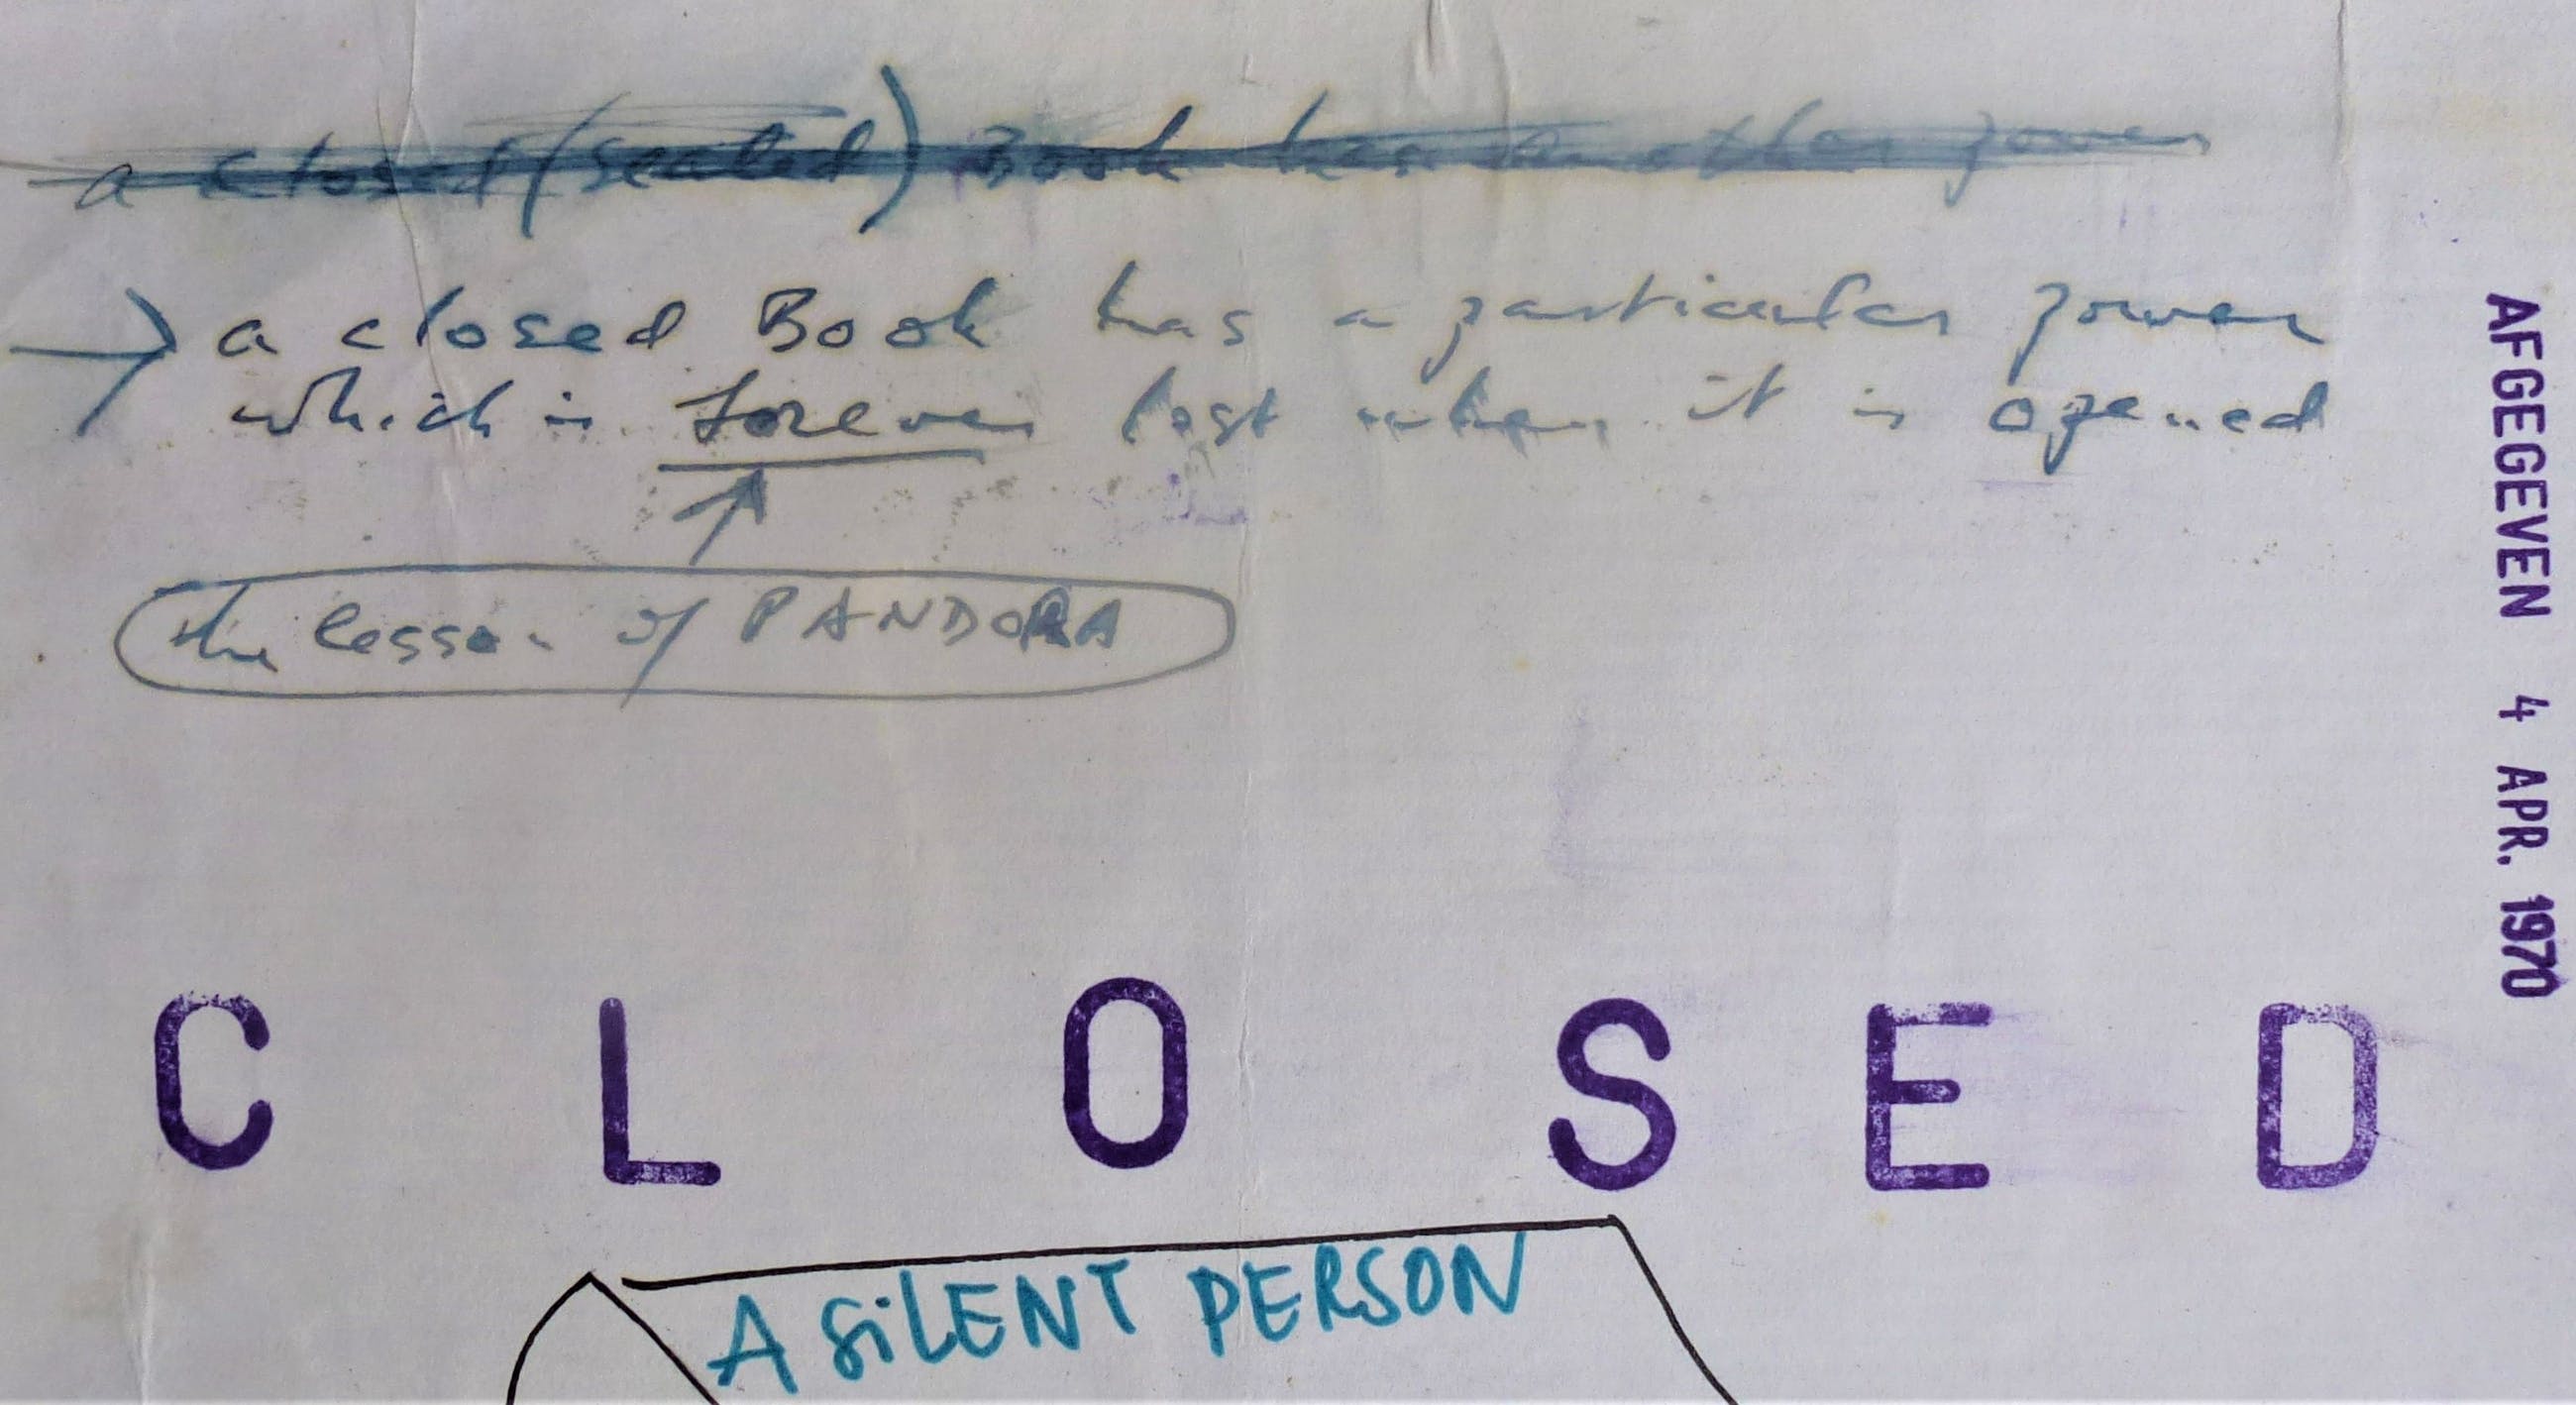 a closed (sealed) Book has another power
→ a closed Book has a particular power
which is forever lost when it is opened
the lesson of PANDORA
AFGEGEVEN 4 APR. 1970
C L O S E D
A SiLENT PERSON